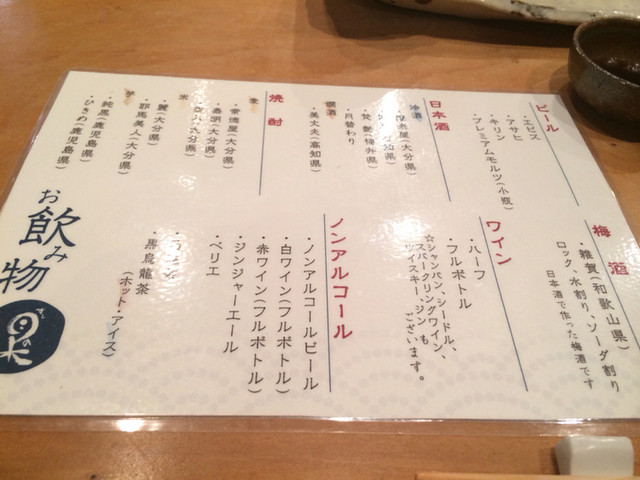 ビール
・エビス
・アサヒ
・キリン
・プレミアムモルツ(小瓶)
日本酒
冷酒
・梵 艶(福井県)
・月替わり
燗酒
・美丈夫(高知県)
焼酎
麦
・常徳屋(大分県)
・泰明(大分県)
米
・麓(大分県)
・耶馬美人(大分県)
芋
・純黒(鹿児島県)
・ひとめ(鹿児島県)
梅酒
・雑賀(和歌山県)
ロック、水割り、ソーダ割り
日本酒で作った梅酒です
ワイン
・ハーフ
・フルボトル
☆シャンパン、シードル、
スパークリングワイン、
ウイスキー、ジン も
ございます。
ノンアルコール
・ノンアルコールビール
・白ワイン(フルボトル)
・赤ワイン(フルボトル)
・ジンジャーエール
・ペリエ
・黒烏龍茶
(ホット・アイス)
お飲み物